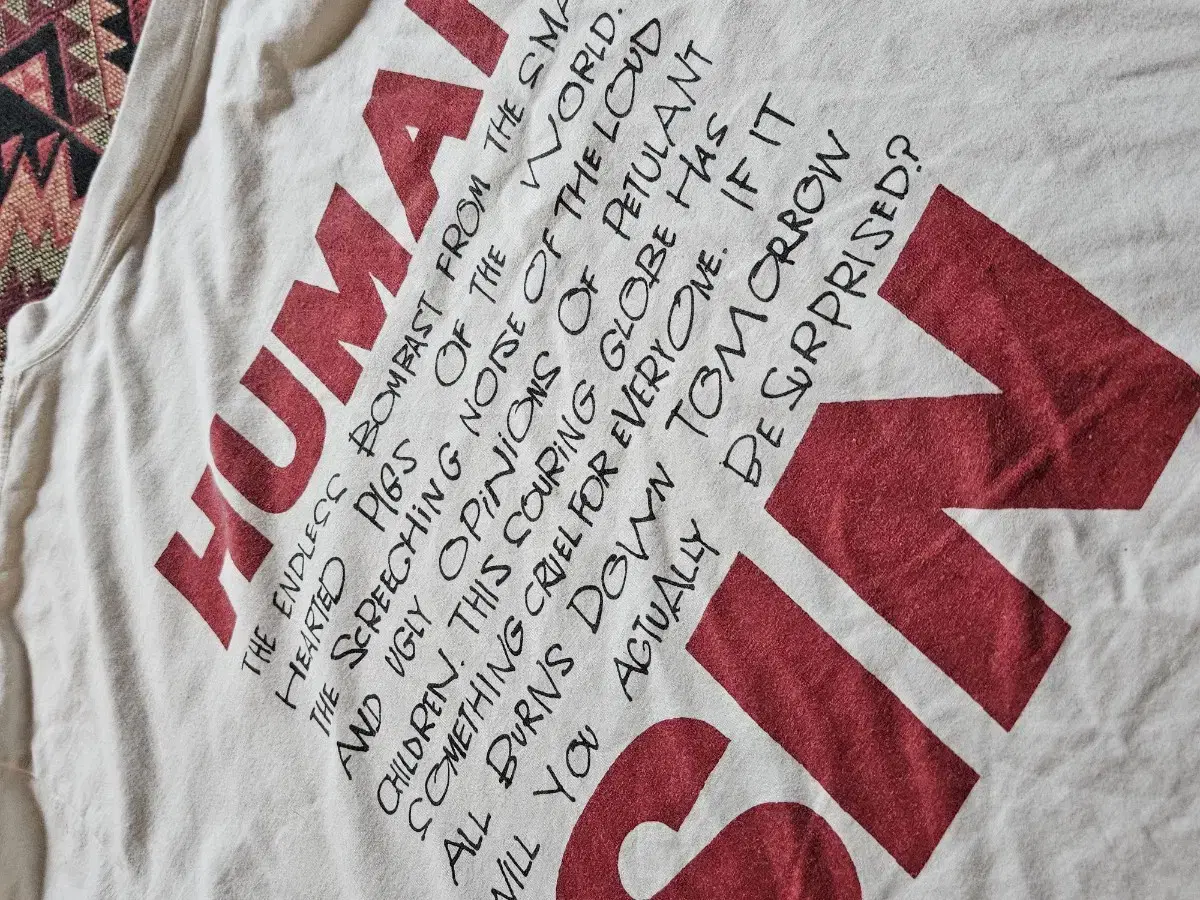 HUMA
THE ENDLESS BOMBAST FROM THE SMA
HEARTED PIGS OF THE WORLD.
THE SCREECHING NOISE OF THE LOUD
AND UGLY OPINIONS OF PETULANT
CHILDREN. THIS SOURING GLOBE HAS
SOMETHING CRUEL FOR EVERYONE. IF IT
ALL BURNS DOWN TOMORROW
WILL YOU ACTUALLY BE SURPRISED?
SIN